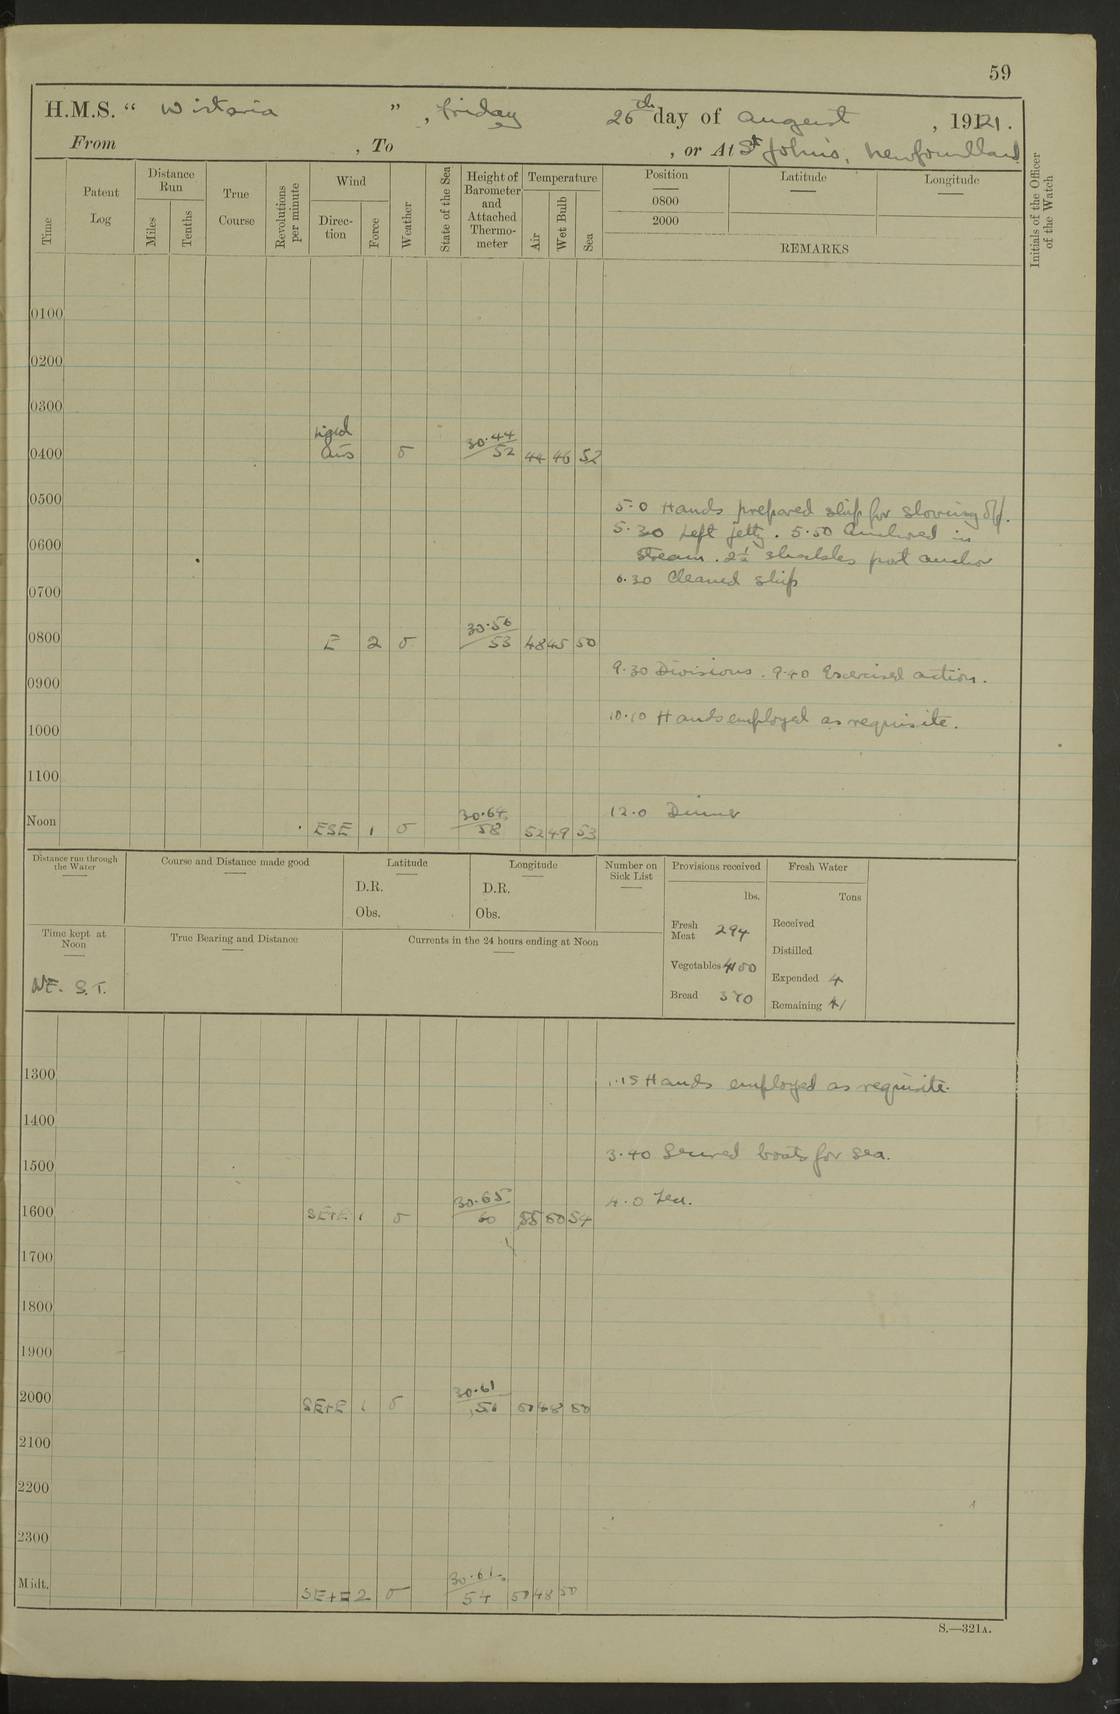 59
H.M.S. “ Wistaria ” , Friday 26th day of August , 1921.
From , To , or At St Johns, Newfoundland
Time
Patent Log
Distance Run
Miles
Tenths
True Course
Revolutions per minute
Wind
Direction
Force
Weather
State of the Sea
Height of Barometer and Attached Thermometer
Temperature
Air
Wet Bulb
Sea
Position Latitude Longitude
0800
2000
REMARKS
Initials of the Officer of the Watch
0100
0200
0300
light
0400 airs o 30.44 52 44 46 52
0500 5.0 Hands prepared ship for shoving off.
5.30 Left jetty. 5.50 Anchored in
0600 stream. 2½ shackles port anchor
0700 6.30 Cleaned ship
0800 E 2 o 30.56 53 48 45 50
0900 9.30 Divisions. 9.40 Exercised action.
1000 10.10 Hands employed as requisite.
1100
Noon ESE 1 o 30.64 58 52 49 53 12.0 Dinner
Distance run through the Water
Course and Distance made good
Latitude
D.R.
Obs.
Longitude
D.R.
Obs.
Number on Sick List
Provisions received
lbs.
Fresh Meat 294
Vegetables 400
Bread 370
Fresh Water
Tons
Received
Distilled
Expended 4
Remaining 41
Time kept at Noon
NF. S.T.
True Bearing and Distance
Currents in the 24 hours ending at Noon
1300 1.15 Hands employed as requisite.
1400
1500 3.40 Secured boats for sea.
1600 SE+E 1 o 30.65 60 55 50 54 4.0 Tea.
1700
1800
1900
2000 SE+E 1 o 30.61 56 50 48 50
2100
2200
2300
Midt. SE+E 2 o 30.61 54 50 48 50
S.—321A.